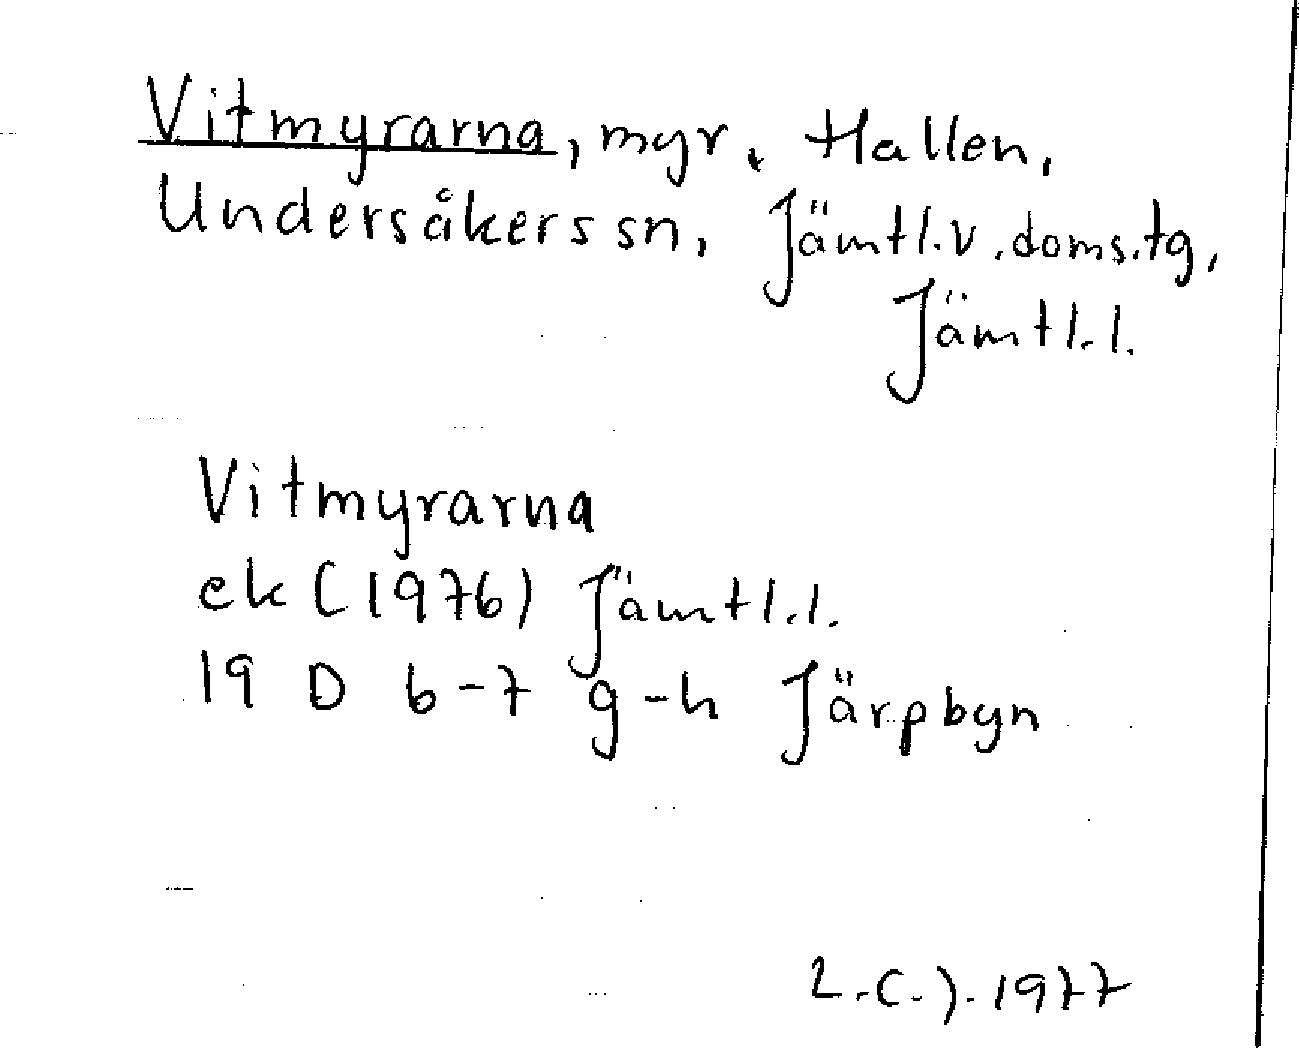 Vitmyrarna, myr. Hallen,
Undersåkers sn, Jämtl.v.doms.tg,
Jämtl.l.
Vitmyrarna
ek (1976) Jämtl.l.
19 D 6-7 g-h Järpbyn
L.C.J. 1977